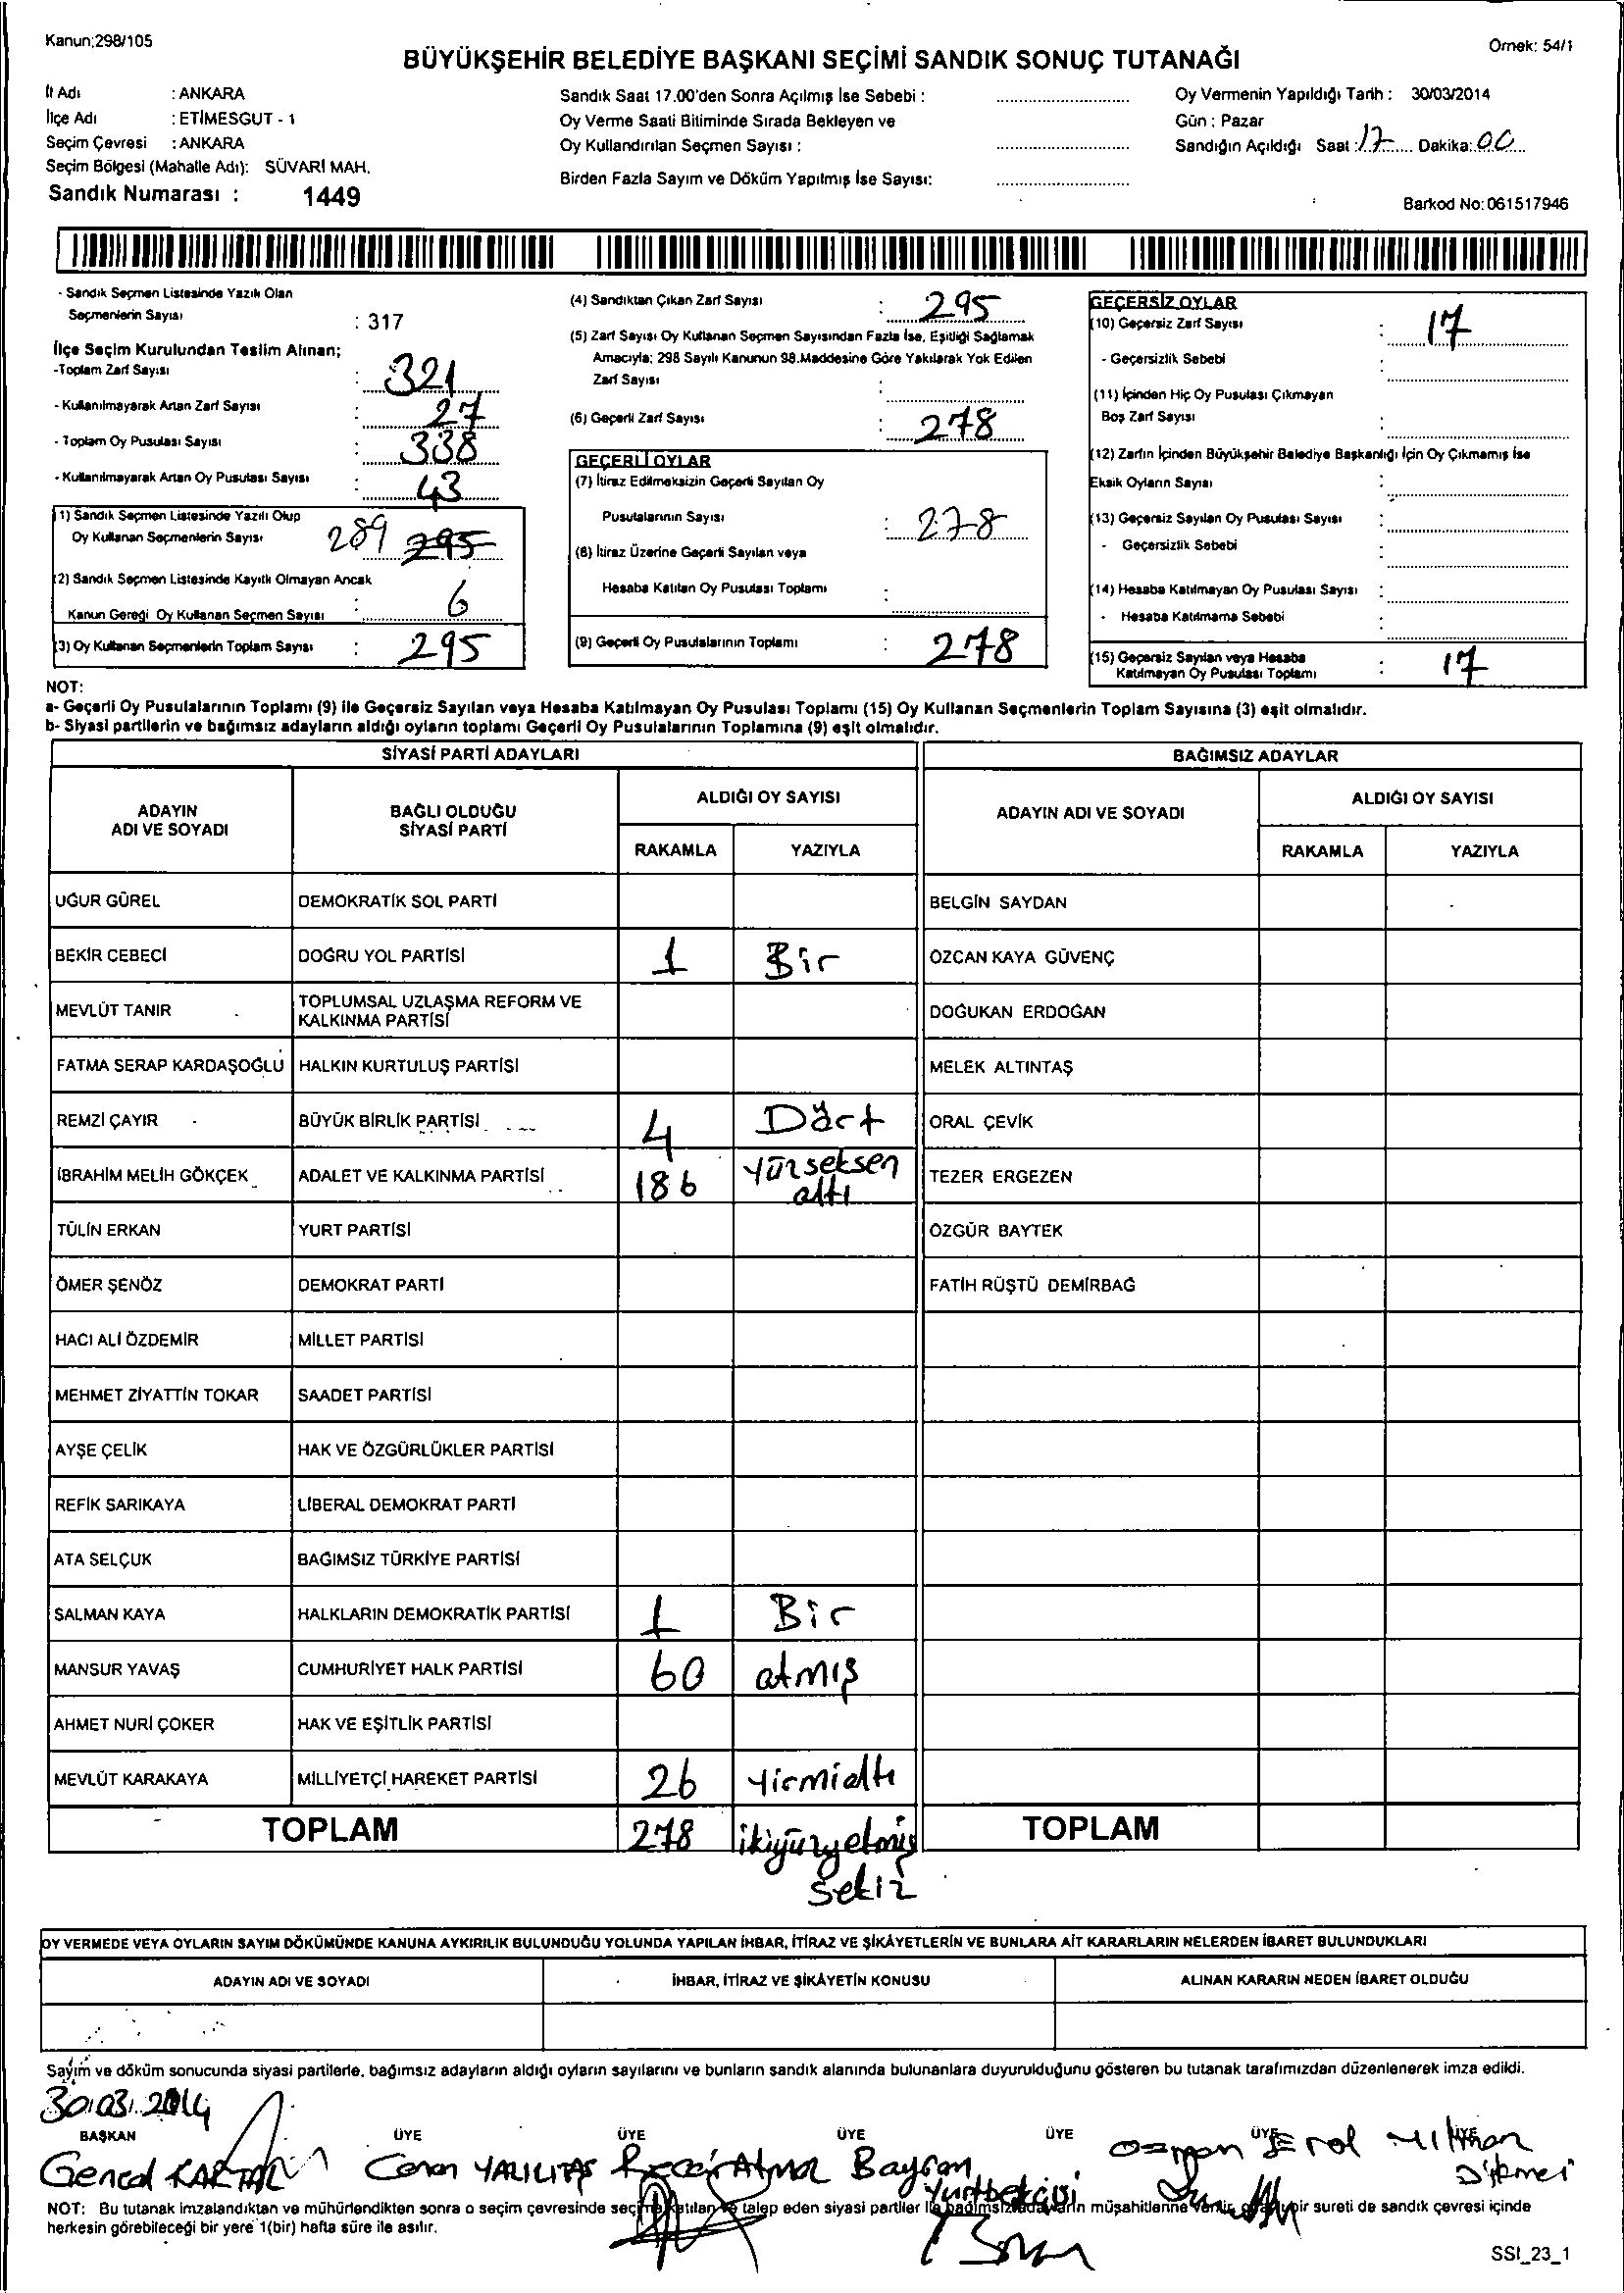 Kanun;298/105
Örnek: 54/1
BÜYÜKŞEHİR BELEDİYE BAŞKANI SEÇİMİ SANDIK SONUÇ TUTANAĞI
İl Adı : ANKARA
İlçe Adı : ETİMESGUT - 1
Seçim Çevresi : ANKARA
Seçim Bölgesi (Mahalle Adı): SÜVARİ MAH.
Sandık Numarası : 1449
Sandık Saat 17.00'den Sonra Açılmış İse Sebebi :
Oy Verme Saati Bitiminde Sırada Bekleyen ve
Oy Kullandırılan Seçmen Sayısı :
Birden Fazla Sayım ve Döküm Yapılmış İse Sayısı:
Oy Vermenin Yapıldığı Tarih : 30/03/2014
Gün : Pazar
Sandığın Açıldığı Saat : 17 Dakika: 00
Barkod No: 061517946
- Sandık Seçmen Listesinde Yazılı Olan
Seçmenlerin Sayısı : 317
İlçe Seçim Kurulundan Teslim Alınan;
-Toplam Zarf Sayısı : 321
- Kullanılmayarak Artan Zarf Sayısı : 27
- Toplam Oy Pusulası Sayısı : 338
- Kullanılmayarak Artan Oy Pusulası Sayısı : 43
(1) Sandık Seçmen Listesinde Yazılı Olup
Oy Kullanan Seçmenlerin Sayısı 289 295
(2) Sandık Seçmen Listesinde Kayıtlı Olmayan Ancak
Kanun Gereği Oy Kullanan Seçmen Sayısı : 6
(3) Oy Kullanan Seçmenlerin Toplam Sayısı : 295
(4) Sandıktan Çıkan Zarf Sayısı : 295
(5) Zarf Sayısı Oy Kullanan Seçmen Sayısından Fazla İse, Eşitliği Sağlamak
Amacıyla; 298 Sayılı Kanunun 98.Maddesine Göre Yakılarak Yok Edilen
Zarf Sayısı :
(6) Geçerli Zarf Sayısı : 278
GEÇERLİ OYLAR
(7) İtiraz Edilmeksizin Geçerli Sayılan Oy
Pusulalarının Sayısı : 278
(8) İtiraz Üzerine Geçerli Sayılan veya
Hesaba Katılan Oy Pusulası Toplamı :
(9) Geçerli Oy Pusulalarının Toplamı : 278
GEÇERSİZ OYLAR
(10) Geçersiz Zarf Sayısı : 17
- Geçersizlik Sebebi :
(11) İçinden Hiç Oy Pusulası Çıkmayan
Boş Zarf Sayısı :
(12) Zarfın İçinden Büyükşehir Belediye Başkanlığı İçin Oy Çıkmamış İse
Eksik Oyların Sayısı :
(13) Geçersiz Sayılan Oy Pusulası Sayısı :
- Geçersizlik Sebebi :
(14) Hesaba Katılmayan Oy Pusulası Sayısı :
- Hesaba Katılmama Sebebi :
(15) Geçersiz Sayılan veya Hesaba
Katılmayan Oy Pusulası Toplamı : 17
NOT:
a- Geçerli Oy Pusulalarının Toplamı (9) ile Geçersiz Sayılan veya Hesaba Katılmayan Oy Pusulası Toplamı (15) Oy Kullanan Seçmenlerin Toplam Sayısına (3) eşit olmalıdır.
b- Siyasi partilerin ve bağımsız adayların aldığı oyların toplamı Geçerli Oy Pusulalarının Toplamına (9) eşit olmalıdır.
SİYASİ PARTİ ADAYLARI
BAĞIMSIZ ADAYLAR
ADAYIN ADI VE SOYADI
BAĞLI OLDUĞU SİYASİ PARTİ
ALDIĞI OY SAYISI
RAKAMLA YAZIYLA
ADAYIN ADI VE SOYADI
ALDIĞI OY SAYISI
RAKAMLA YAZIYLA
UĞUR GÜREL DEMOKRATİK SOL PARTİ BELGİN SAYDAN
BEKİR CEBECİ DOĞRU YOL PARTİSİ 1 Bir ÖZCAN KAYA GÜVENÇ
MEVLÜT TANIR TOPLUMSAL UZLAŞMA REFORM VE KALKINMA PARTİSİ DOĞUKAN ERDOĞAN
FATMA SERAP KARDAŞOĞLU HALKIN KURTULUŞ PARTİSİ MELEK ALTINTAŞ
REMZİ ÇAYIR BÜYÜK BİRLİK PARTİSİ 4 Dört ORAL ÇEVİK
İBRAHİM MELİH GÖKÇEK ADALET VE KALKINMA PARTİSİ 186 Yüzseksen altı TEZER ERGEZEN
TÜLİN ERKAN YURT PARTİSİ ÖZGÜR BAYTEK
ÖMER ŞENÖZ DEMOKRAT PARTİ FATİH RÜŞTÜ DEMİRBAĞ
HACI ALİ ÖZDEMİR MİLLET PARTİSİ
MEHMET ZİYATTİN TOKAR SAADET PARTİSİ
AYŞE ÇELİK HAK VE ÖZGÜRLÜKLER PARTİSİ
REFİK SARIKAYA LİBERAL DEMOKRAT PARTİ
ATA SELÇUK BAĞIMSIZ TÜRKİYE PARTİSİ
SALMAN KAYA HALKLARIN DEMOKRATİK PARTİSİ 1 Bir
MANSUR YAVAŞ CUMHURİYET HALK PARTİSİ 60 atmış
AHMET NURİ ÇOKER HAK VE EŞİTLİK PARTİSİ
MEVLÜT KARAKAYA MİLLİYETÇİ HAREKET PARTİSİ 26 Yirmialtı
TOPLAM 278 ikiyüzyetmiş sekiz TOPLAM
OY VERMEDE VEYA OYLARIN SAYIM DÖKÜMÜNDE KANUNA AYKIRILIK BULUNDUĞU YOLUNDA YAPILAN İHBAR, İTİRAZ VE ŞİKÂYETLERİN VE BUNLARA AİT KARARLARIN NELERDEN İBARET BULUNDUKLARI
ADAYIN ADI VE SOYADI İHBAR, İTİRAZ VE ŞİKÂYETİN KONUSU ALINAN KARARIN NEDEN İBARET OLDUĞU
Sayım ve döküm sonucunda siyasi partilerle, bağımsız adayların aldığı oyların sayılarını ve bunların sandık alanında bulunanlara duyurulduğunu gösteren bu tutanak tarafımızdan düzenlenerek imza edildi.
30.03.2014
BAŞKAN ÜYE ÜYE ÜYE ÜYE ÜYE ÜYE
Osman Erol
Bayram Yurtbekçisi
NOT: Bu tutanak imzalandıktan ve mühürlendikten sonra o seçim çevresinde seçime katılan ve talep eden siyasi partiler ile bağımsız adayların müşahitlerine verilir, bir sureti de sandık çevresi içinde
herkesin görebileceği bir yere 1(bir) hafta süre ile asılır.
SSI_23_1